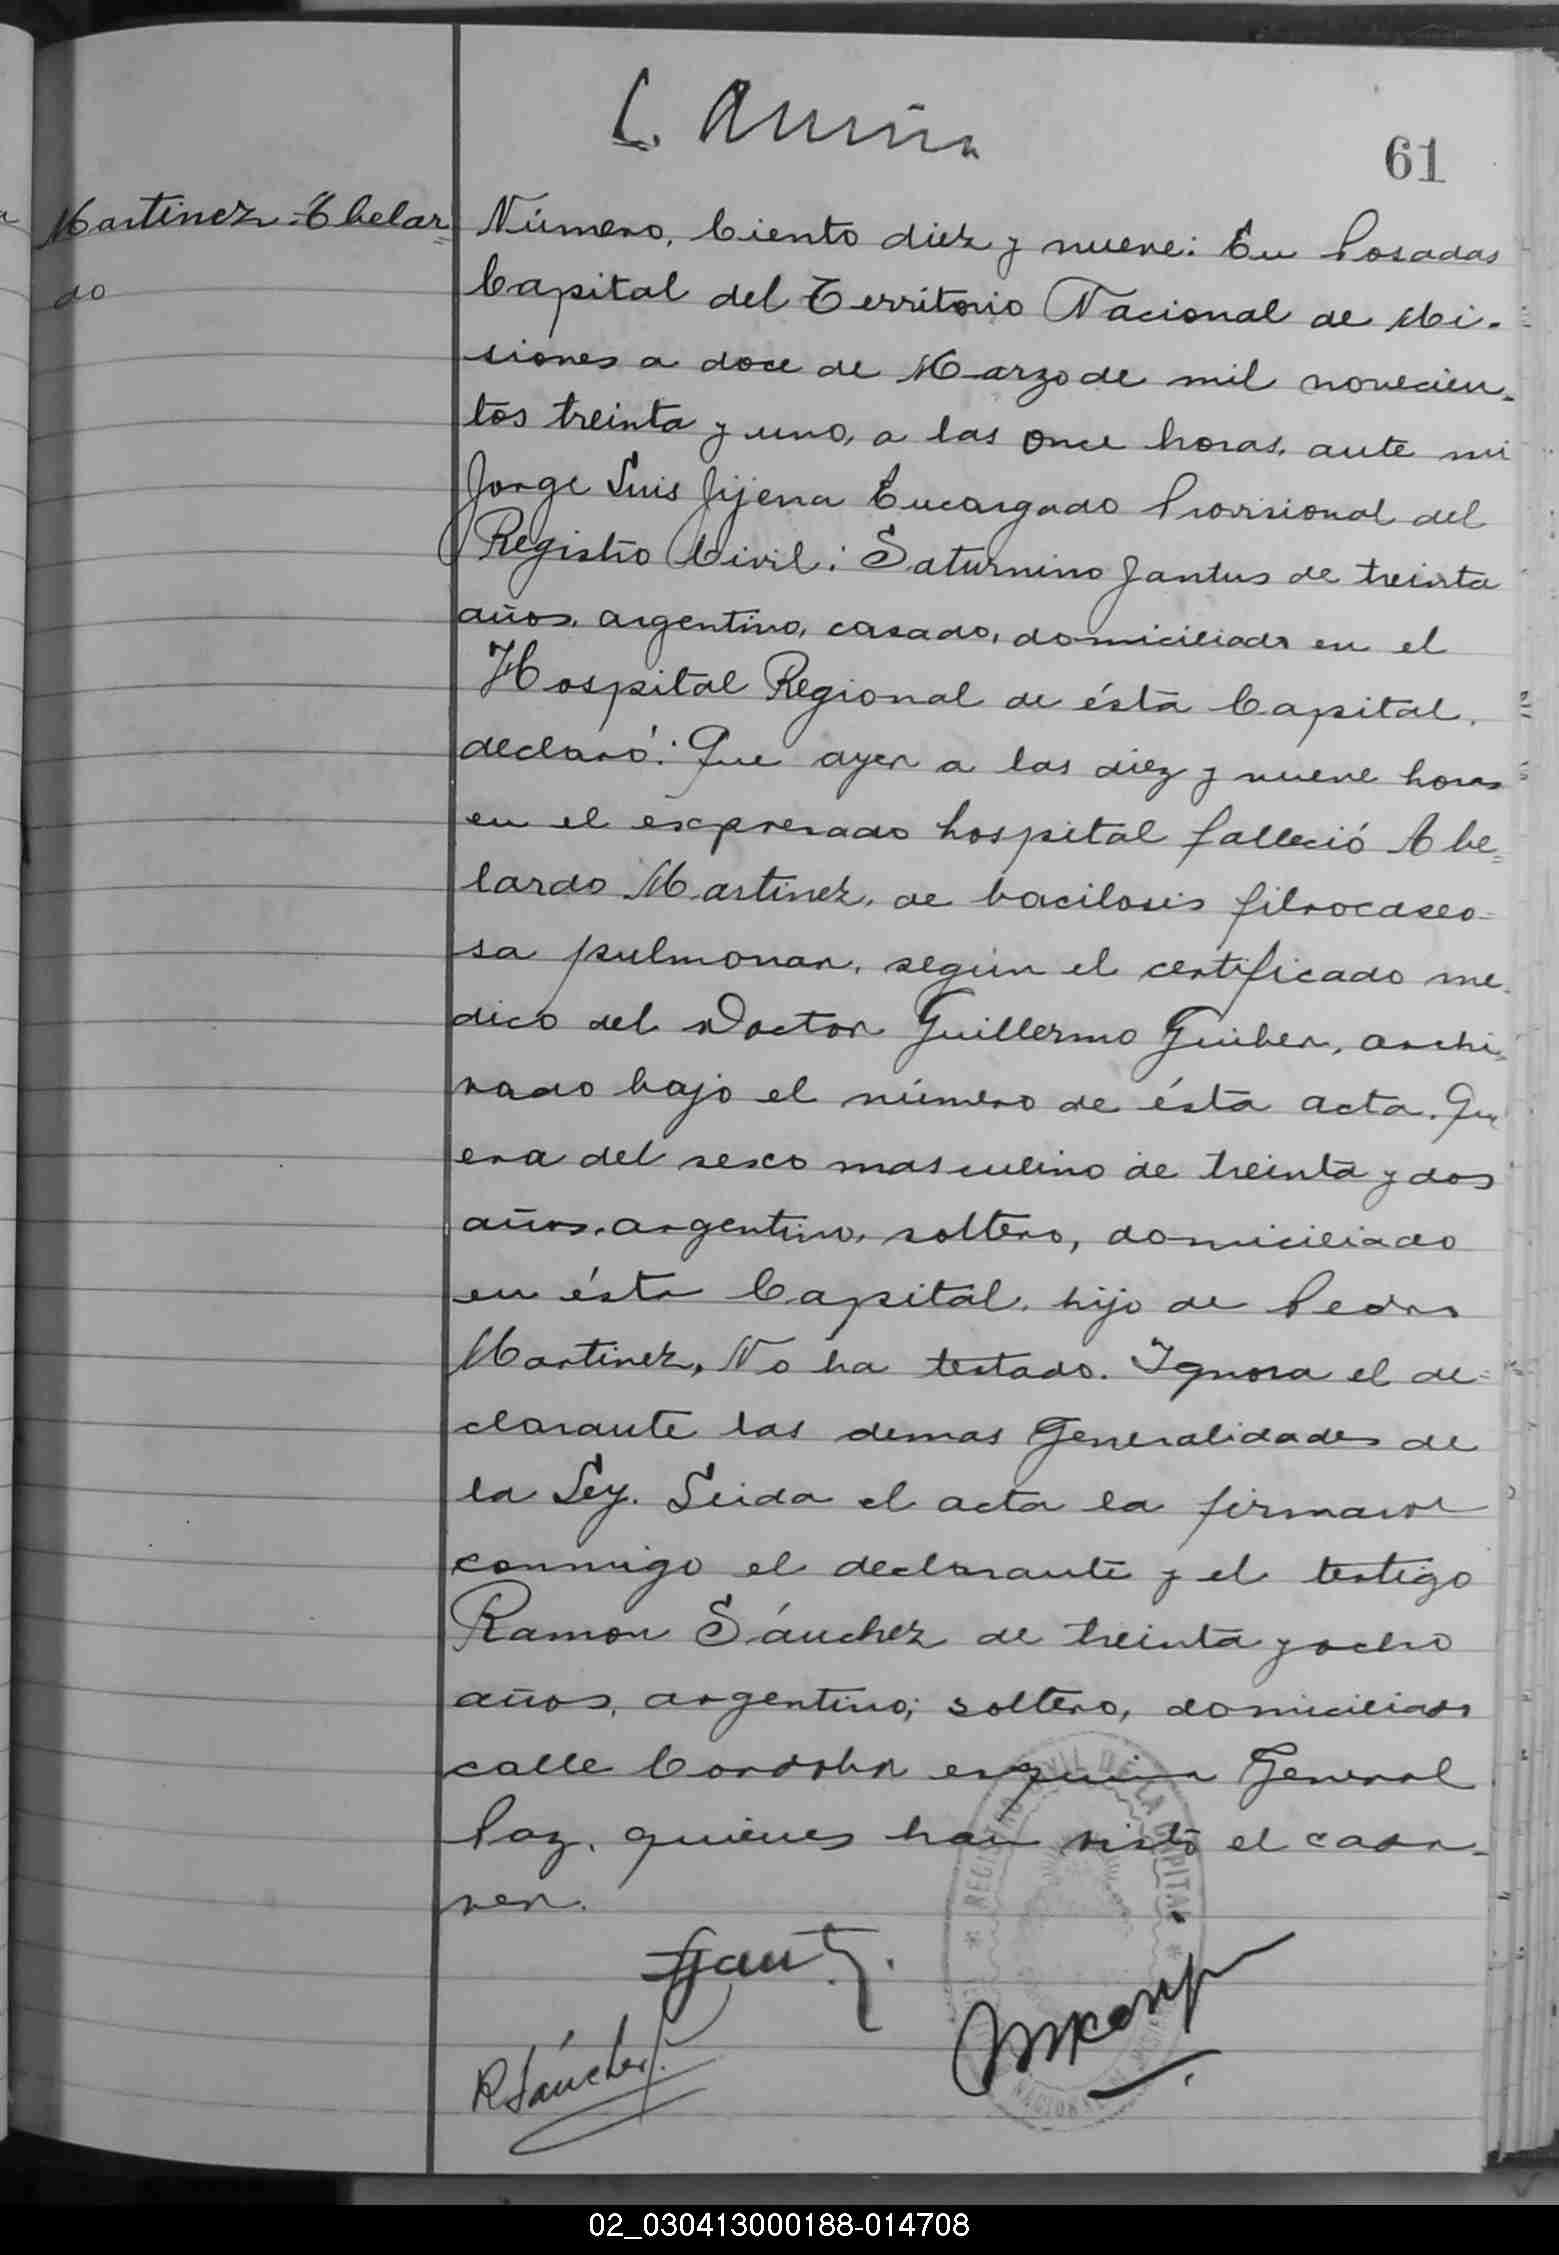 61
Martinez Abelar=
do
Número, Ciento diez y nueve: En Posadas
Capital del Territorio Nacional de Mi-
siones a doce de Marzo de mil novecien-
tos treinta y uno, a las once horas, ante mi
Jorge Luis Jijena Encargado Provisional del
Registro Civil: Saturnino Jantus de treinta
años, argentino, casado, domiciliado en el
Hospital Regional de ésta Capital,
declaró: Que ayer a las diez y nueve horas
en el expresado hospital falleció Abe=
lardo Martinez, de bacilosis fibrocaseo-
sa pulmonar, según el certificado me-
dico del Doctor Guillermo Guiber, archi-
vado bajo el número de ésta acta. Que
era del sexo masculino de treinta y dos
años, argentino, soltero, domiciliado
en ésta Capital, hijo de Pedro
Martinez, No ha testado. Ignora el de=
clarante las demas Generalidades de
la Ley. Leida el acta la firmaron
conmigo el declarante y el testigo
Ramon Sánchez de treinta y ocho
años, argentino, soltero, domiciliado
calle Cordoba esquina General
Paz, quienes han visto el cada-
ver.
REGISTRO CIVIL DE LA CAPITAL
RSánchez
02_030413000188-014708